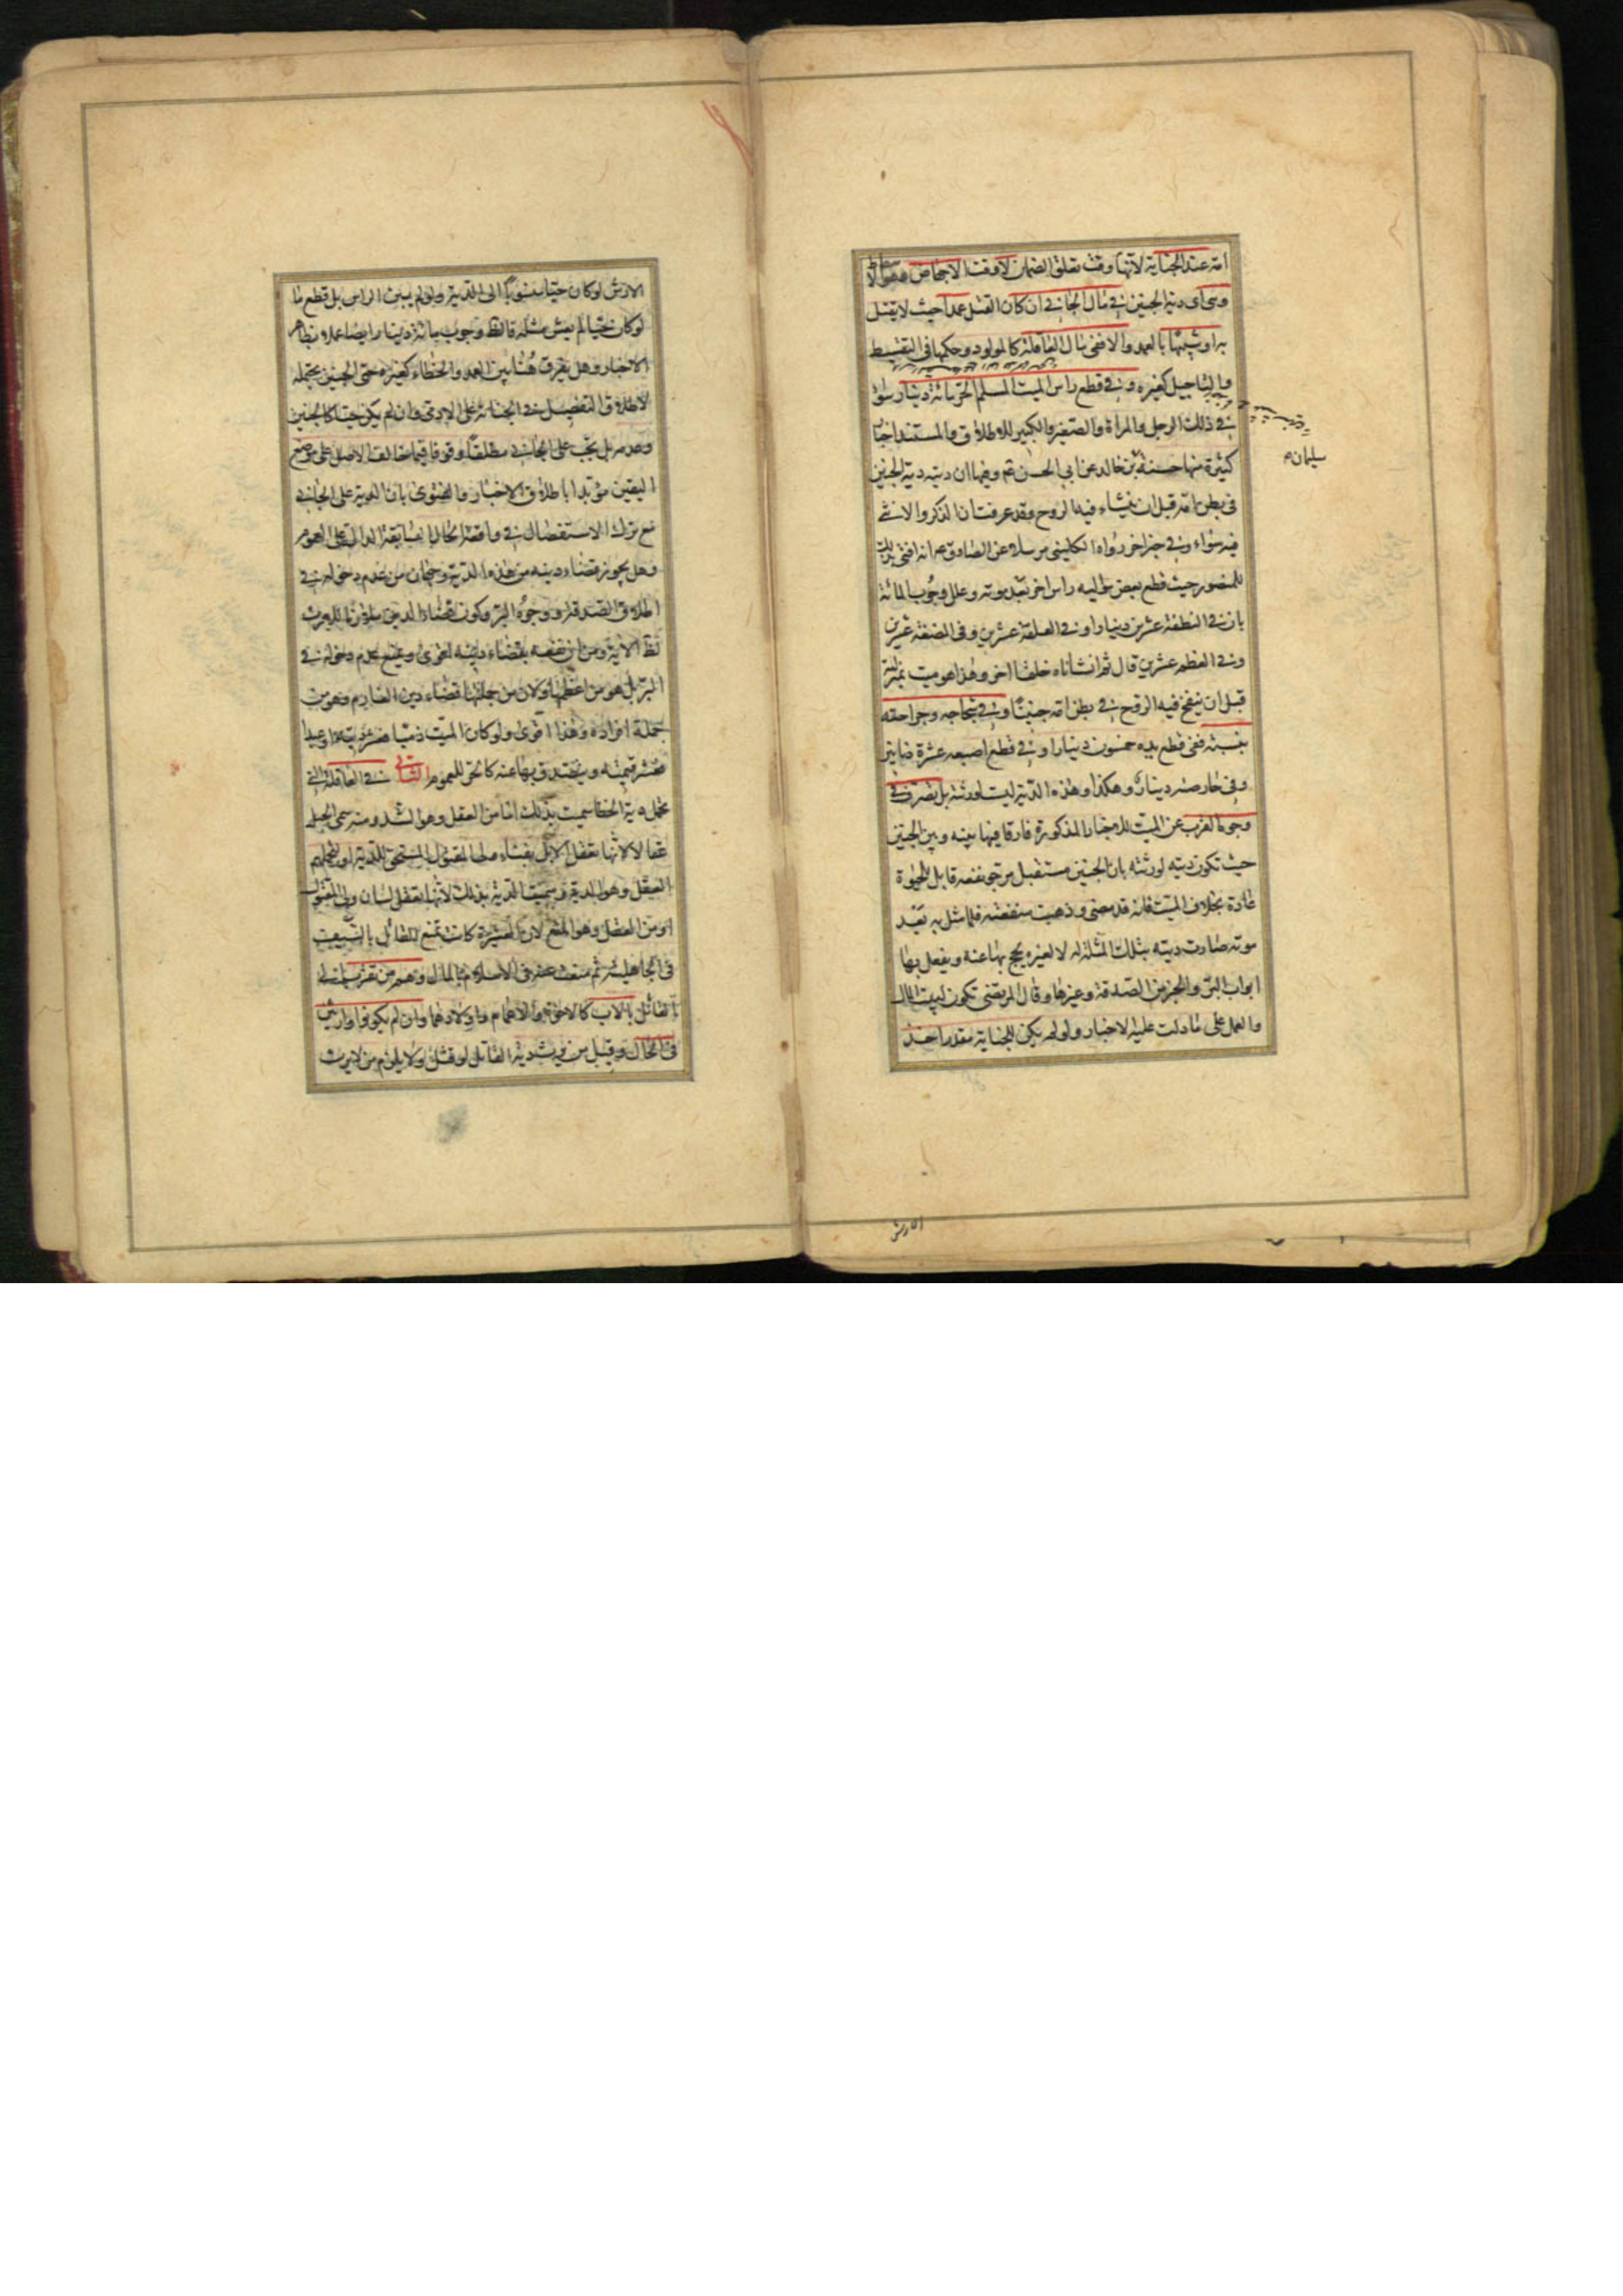 امه عند الجناية لانها وقت تعلق الضمان لا وقت الاجهاض وهو السقوط
وهى اى دية الجنين في مال الجاني ان كان القتل عمدا حيث لا يقتل
به او شبيها بالعمد والا ففي مال العاقلة كالمولود وحكمها في التقسيط
والتاجيل كغيره وفي قطع راس الميت المسلم الحر مائة دينار سواء
في ذلك الرجل والمراة والصغير والكبير للاطلاق والمستند اخبار
كثيرة منها حسنة بن خالد عن ابي الحسن ع وفيها ان ديته دية الجنين
سليمان
في بطن امه قبل ان ينشاء فيه الروح وقد عرفت ان الذكر والانثى
فيه سواء وفي خبر اخر رواه الكليني مرسلا عن الصادق ع انه افتى بذلك
للمنصور حيث قطع بعض مواليه راس اخر بعد موته وعلل وجوب المائة
بان في النطفة عشرين دينارا وفي العلقة عشرين وفي المضغة عشرين
وفي العظم عشرين قال ثم انشأناه خلقا اخر وهذا هو ميت بمنزلته
قبل ان ينفخ فيه الروح في بطن امه جنينا وفي شجاجه وجراحه
بنسبته ففي قطع يده خمسون دينارا وفي قطع اصبعه عشرة دنانير
وفي حارصته دينار وهكذا وهذه الدية ليست لورثته بل تصرف في
وجوه القرب عن الميت للاخبار المذكورة فارقا فيها بينه وبين الجنين
حيث تكون ديته لورثته بان الجنين مستقبل مرجو نفعه قابل للحيوة
عادة بخلاف الميت فانه قد مضى وذهبت منفعته فلما مثل به بعد
موته صارت ديته بتلك المثلة له لا لغيره يحج بها عنه ويفعل بها
ابواب البر والخير من الصدقة وغيرها وقال المرتضى تكون لبيت المال
والعمل على ما دلت عليه الاخبار ولو لم يكن للجناية مقدر اخذ
الارش
الارش لو كان حيا منسوبا الى الدية ولو لم يبن الراس بل قطع ما
لو كان حيا لم يعش مثله فالظ وجوب مائة دينار ايضا عملا بظاهر
الاخبار وهل يفرق هنا بين العمد والخطاء كغيره حتى الجنين يحتمله
لاطلاق التفصيل في الجناية على الادمي وان لم يكن حيا كالجنين
وعدمه بل يجب على الجاني مطلقا وقوفا فيما خالف الاصل على موضع
اليقين مؤيدا باطلاق الاخبار والفتوى بان الدية على الجاني
مع ترك الاستفصال في واقعة الحال السابقة الدال على العموم
وهل يجوز قضاء دينه من هذه الدية وجهان من عدم دخوله في
اطلاق الصدقة ووجوه البر وكون قضاء الدين ملازما للارث
لظ الاية ومن ان نفعه بقضاء دينه اقوى ويمنع عدم دخوله في
البر بل هو من اعظمها ولان من جملتها قضاء دين الغارم وهو من
جملة افراده وهذا اقوى ولو كان الميت ذميا فعشر ديته او عبدا
فعشر قيمته ويتصدق بها عنه كالحر للعموم الثاني في العاقلة التي
تحمل دية الخطا سميت بذلك اما من العقل وهو الشد ومنه سمى الحبل
عقالا لانها تعقل الابل بفناء ولى المقتول المستحق للدية او لتحملهم
العقل وهو الدية وسميت الدية بذلك لانها تعقل لسان ولى المقتول
او من العقل وهو المنع لان العشيرة كانت تمنع القاتل بالسيف
في الجاهلية ثم منعت عنه في الاسلام بالمال وهم من تقرب الى
القاتل بالاب كالاخوة والاعمام واولادهما وان لم يكونوا وارثين
في الحال وقيل من يرث دية القاتل لو قتل ولا يلزم من لا يرث